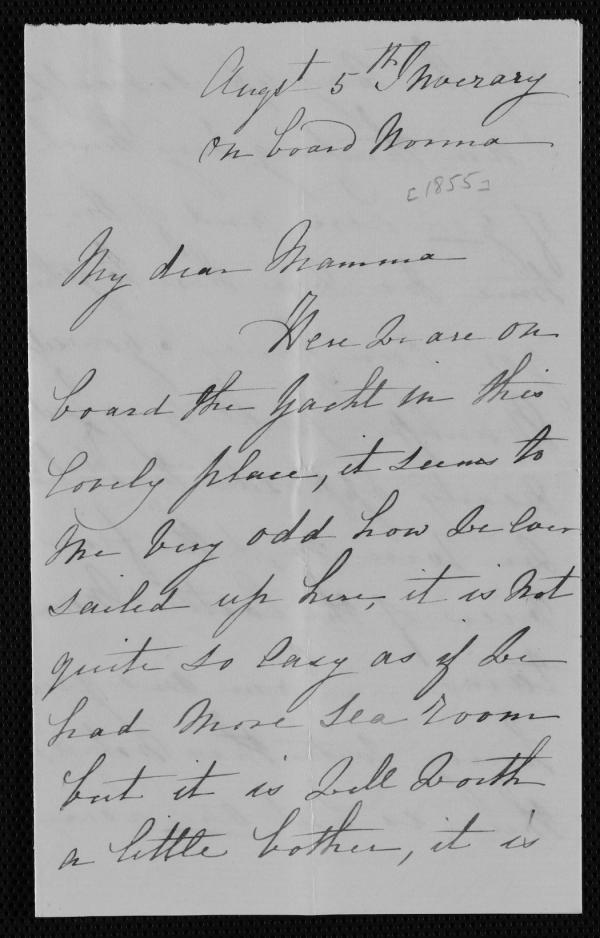 Augst 5th Inverary
on board Norma
[1855]
My dear Mamma
Here we are on
board the Yacht in this
lovely place, it seems to
me very odd how we ever
sailed up here, it is not
quite so easy as if we
had more sea room
but it is well worth
a little bother, it is